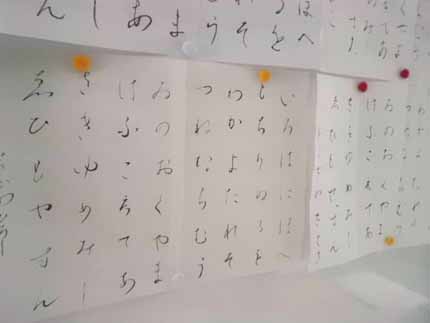 ほへ
るを
れそ
う
ま
あ
し
ん
いろはにほへ
とちりぬるを
わかよたれそ
つねならむう
ゐのおくやま
けふこえてあ
さきゆめみし
ゑひもせすん
ゐのおくやま
けふこえてあ
さきゆめみし
ゑひもせすん